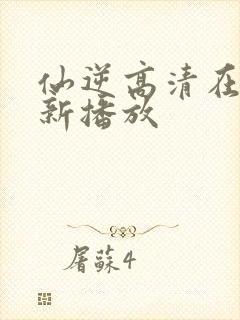 仙逆高清在
新播放
屠蘇4